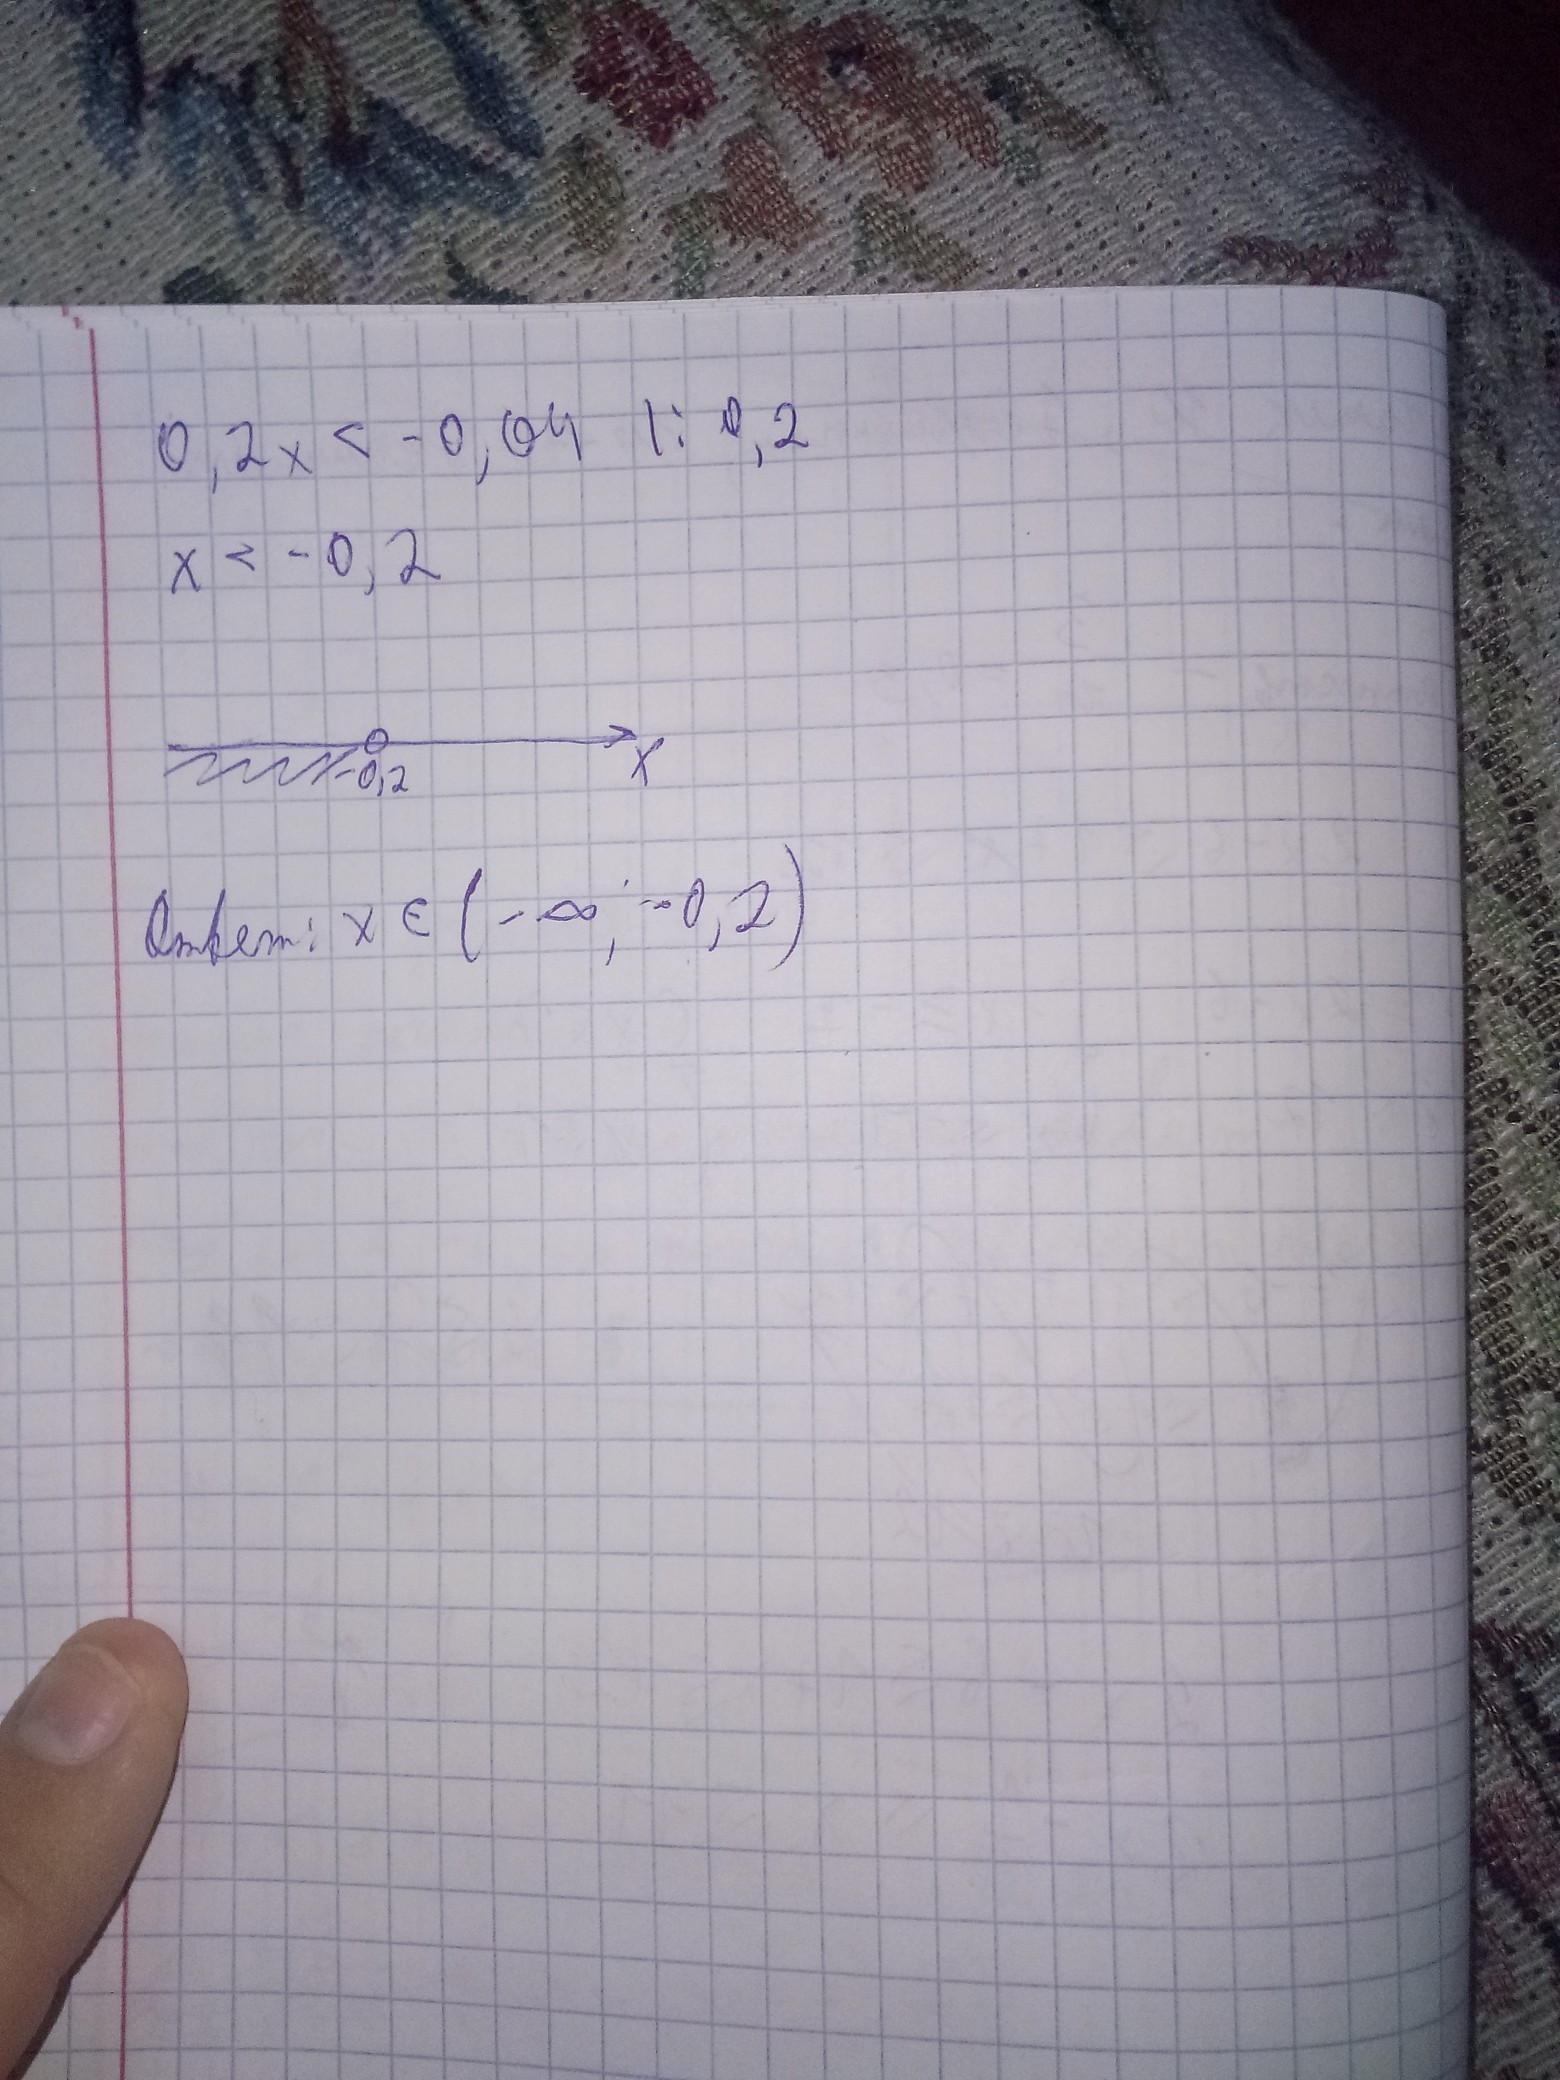 0,2x < -0,04 |: 0,2
x < -0,2
-0,2 x
Ответ: x ∈ (-∞; -0,2)